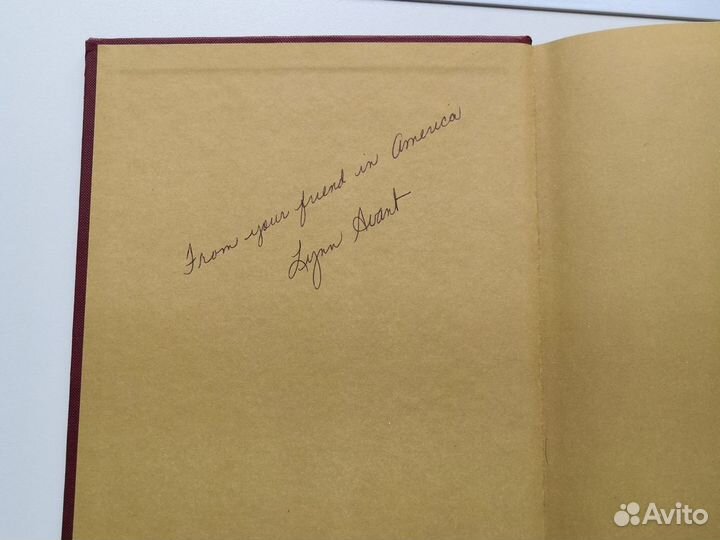 From your friend in America
Lynn Avant
Avito